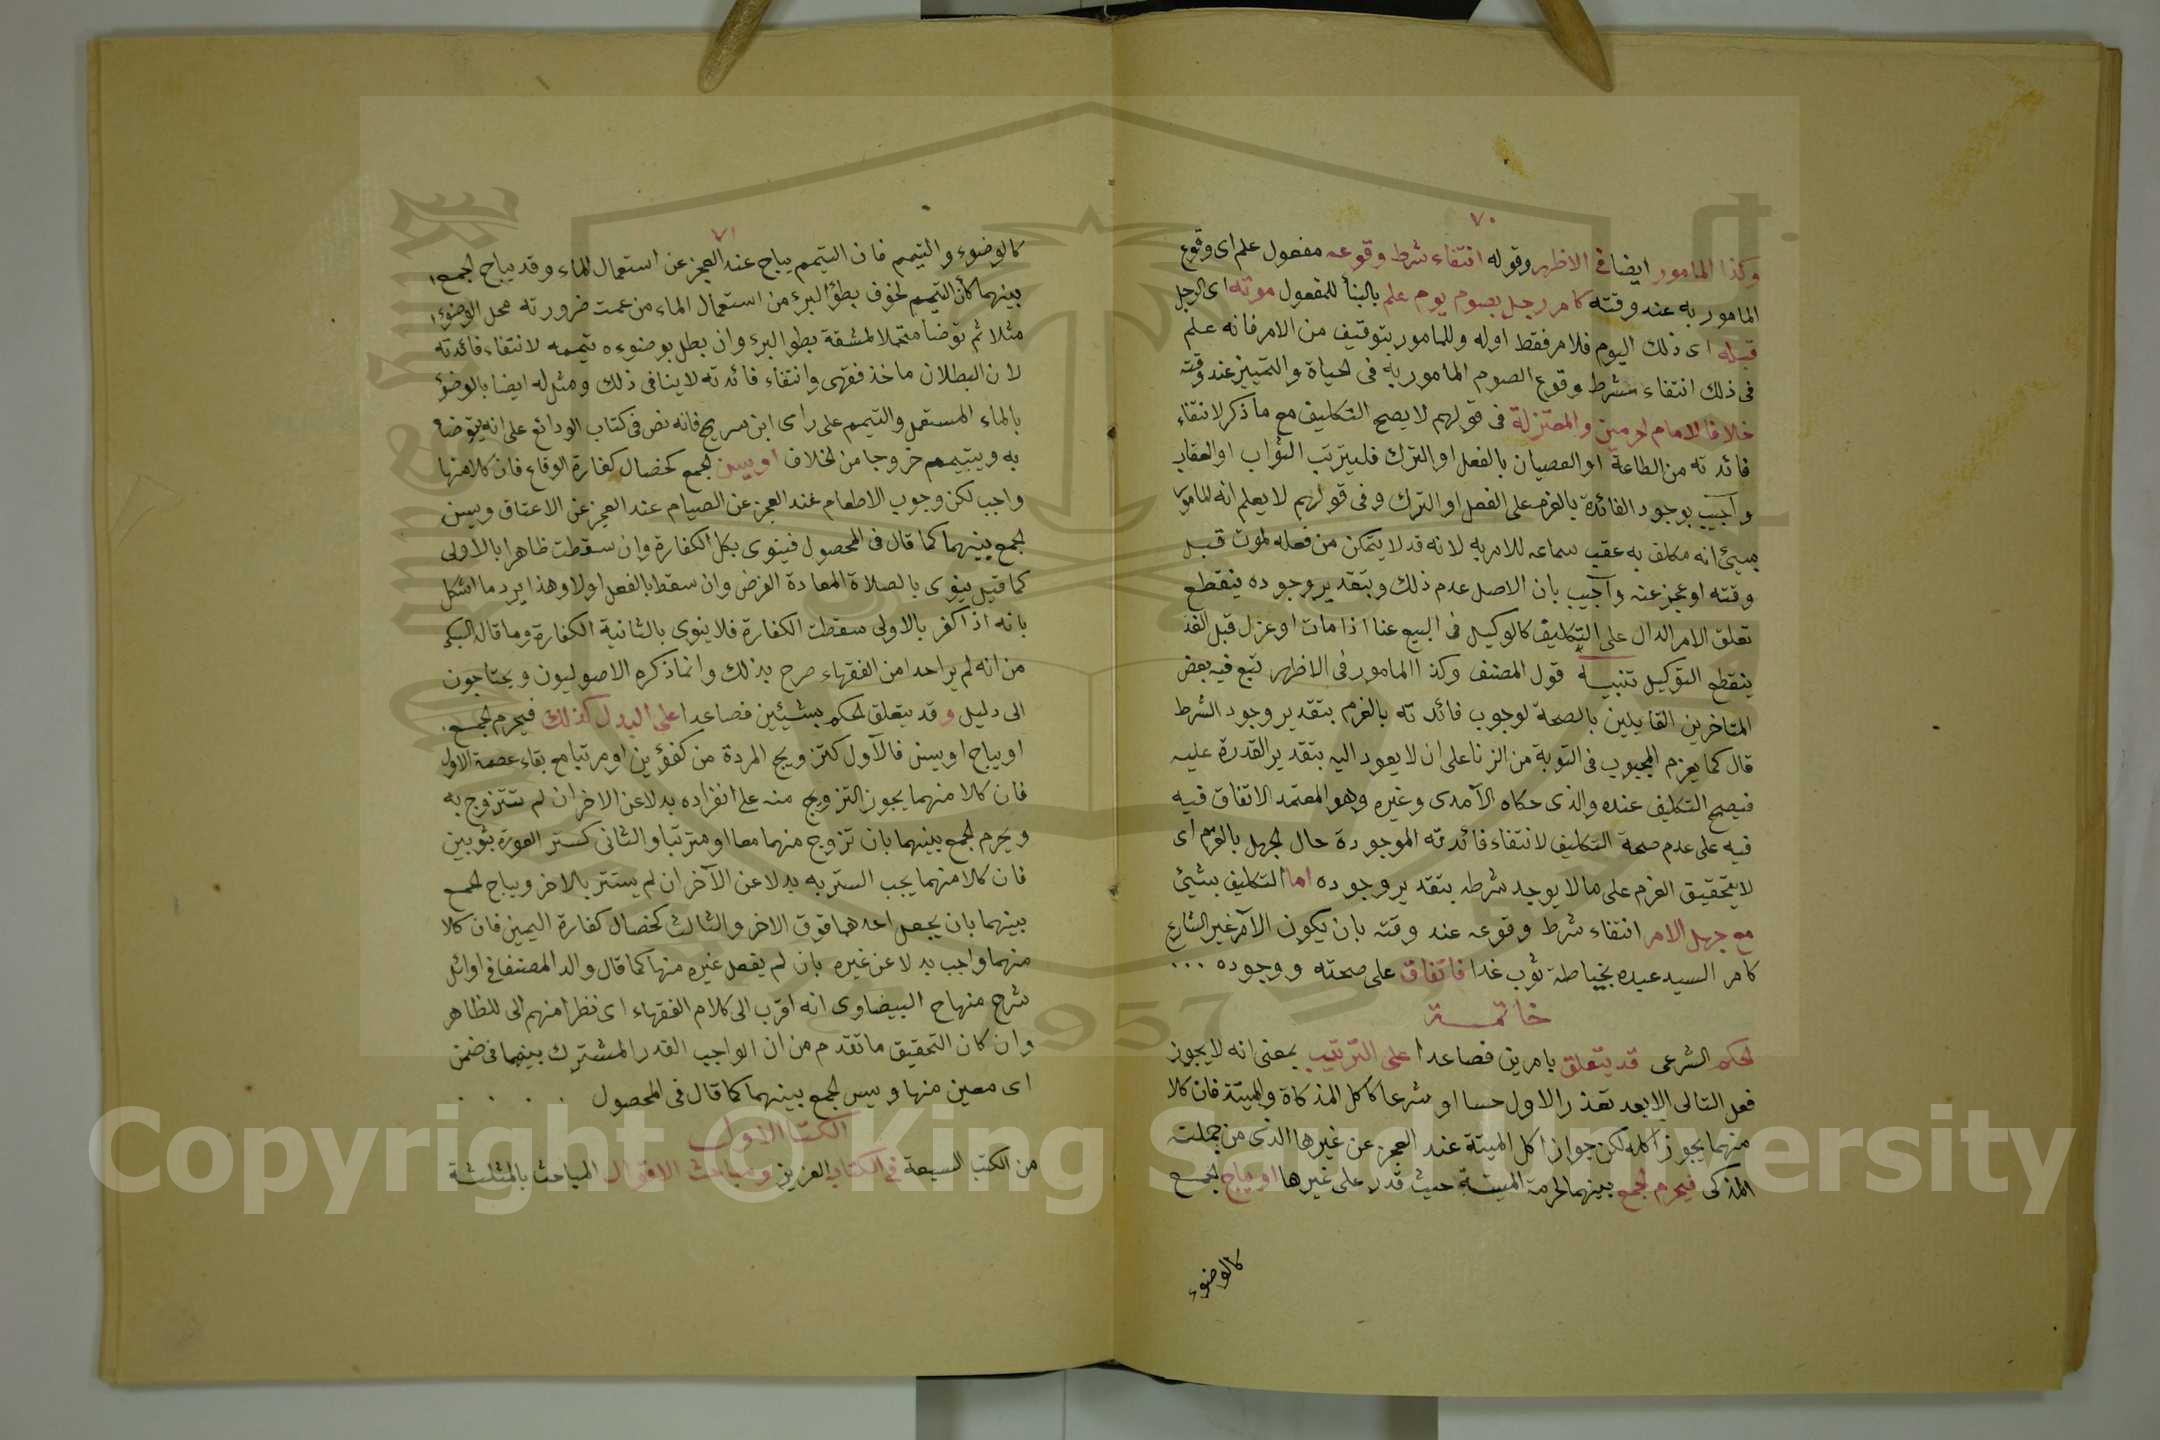 ٧٠
وكذا المامور ايضا في الاظهر وقوله انتفاء شرط وقوعه مفعول علم اى وقوع
المامور به عند وقته كامر رجل بصوم يوم علم بالبنأ للمفعول موته اى الرجل
قبله اى ذلك اليوم فلامر فقط اوله وللمامور بتوقيف من الامر فانه علم
فى ذلك انتفاء شرط وقوع الصوم المامور به فى الحياة والتمييز عند وقته
خلافا لامام الحرمين والمعتزلة فى قولهم لا يصح التكليف مع ما ذكر لانتفاء
فائدته من الطاعة او العصيان بالفعل او الترك فليترتب الثواب او العقاب
وآجيب بوجود الفائدة بالعزم على الفعل او الترك وفى قولهم لا يعلم انه المامور
بشيئ انه مكلف به عقب سماعه للامر به لانه قد لا يتمكن من فعله لموت قبل
وقته او عجز عنه وآجيب بان الاصل عدم ذلك وبتقدير وجوده ينقطع
تعلق الامر الدال على التكليف كالوكيل فى البيع عنا اذا مات او عزل قبل الغد
ينقطع التوكيل تنبيه قول المصنف وكذا المامور فى الاظهر تبع فيه بعض
المتاخرين القايلين بالصحة لوجوب فائدته بالعزم بتقدير وجود الشرط
قال كما يعزم المجبوب فى التوبة من الزنا على ان لا يعود اليه بتقدير القدرة عليه
فيصح التكليف عنده والذى حكاه الآمدى وغيره وهو المعتمد الاتفاق فيه
فيه على عدم صحة التكليف لانتفاء فائدته الموجودة حال الجهل بالعزم اى
لا يتحقيق العزم على ما لا يوجد شرطه بتقدير وجوده اما التكليف بشيئ
مع جهل الامر انتفاء شرط وقوعه عند وقته بان يكون الآمر غير الشارع
كامر السيد عبده بخياطة ثوب غدا فاتفاق على صحته ووجوده ...
خاتمة
الحكم الشرعى قد يتعلق بامرين فصاعدا على الترتيب بمعنى انه لا يجوز
فعل التالى الا بعد تعذر الاول حسا او شرعا كاكل المذكاة والميتة فان كلا
منهما يجوز اكله لكن جواز اكل الميتة عند العجز عن غيرها الذى من جملته
المذكى فيحرم الجمع بينهما لحرمة الميتة حيث قدر على غيرها او يباح الجمع
كالوضوء
٧١
كالوضوء والتيمم فان التيمم يباح عند العجز عن استعمال الماء وقد يباح الجمع
بينهما كأن التيمم لخوف بطؤ البرء من استعمال الماء من عمت ضرورته محل الوضوء
مثلا ثم توضأ متحملا لمشقة بطو البرء وان بطل بوضوءه تيممه لانتفاء فائدته
لان البطلان ماخذ فقهى وانتفاء فائدته لا ينافى ذلك ومثل له ايضا بالوضؤ
بالماء المستعمل والتيمم على راى ابن سريج فانه نص فى كتاب الودائع على انه يتوضأ
به ويتيمم خروجا من الخلاف او يسن الجمع كخصال كفارة الوقاع فان كلا منها
واجب لكن وجوب الاطعام عند العجز عن الصيام عند العجز عن الاعتاق ويسن
الجمع بينهما كما قال فى المحصول فينوى بكل الكفارة وان سقطت ظاهرا بالاولى
كما قيل ينوى بالصلاة المعادة الفرض وان سقط بالفعل اولا وهذا يرد ما اشكل
بانه اذ اكفر بالاولى سقطت الكفارة فلا ينوى بالثانية الكفارة وما قاله السبكى
من انه لم ير احدا من الفقهاء صرح بذلك وانما ذكره الاصوليون ويحتاجون
الى دليل وقد يتعلق الحكم بشيئين فصاعدا على البدل كذلك فيحرم الجمع .
او يباح او يسن فالآول كتزويج المردة من كفؤين او مرتبا مع بقاء عصمة الاول
فان كلا منهما يجوز التزويج منه على انفراده بدلا عن الاخر ان لم تتزوج به
ويحرم الجمع بينهما بان تزوج منهما معا او مترتبا والثانى كستر العورة بثوبين
فان كلا منهما يجب الستر به بدلا عن الآخر ان لم يستتر بالاخر ويباح الجمع
بينهما بان يجعل احدهما فوق الاخر والثالث كخصال كفارة اليمين فان كلا
منهما واجب بدلا عن غيره بان لم يفعل غيره منها كما قال والد المصنف فى اوائل
شرح منهاج البيضاوى انه اقرب الى كلام الفقهاء اى نظرا منهم الى الظاهر
وان كان التحقيق ما تقدم من ان الواجب القدر المشترك بينهما فى ضمن
اى معين منها ويسن الجمع بينهما كما قال فى المحصول . . . .
الكتاب الاول
من الكتب السبعة فى الكتاب العزيز ومباحث الاقوال المباحث بالمثلثة
Copyright © King Saud University
1957